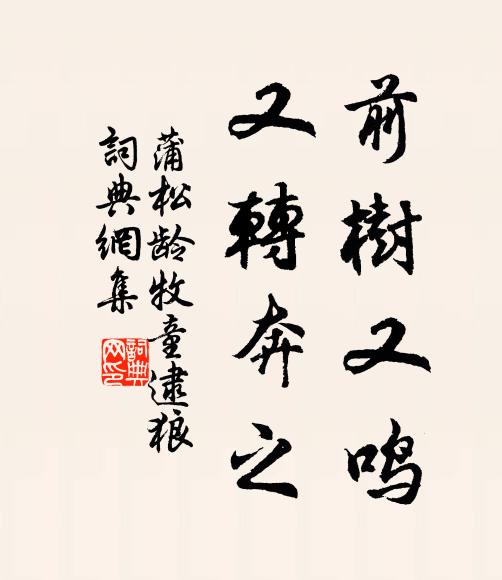 前樹又鸣
又轉奔之
蒲松龄牧童逮狼
詞典網集
詞典网印